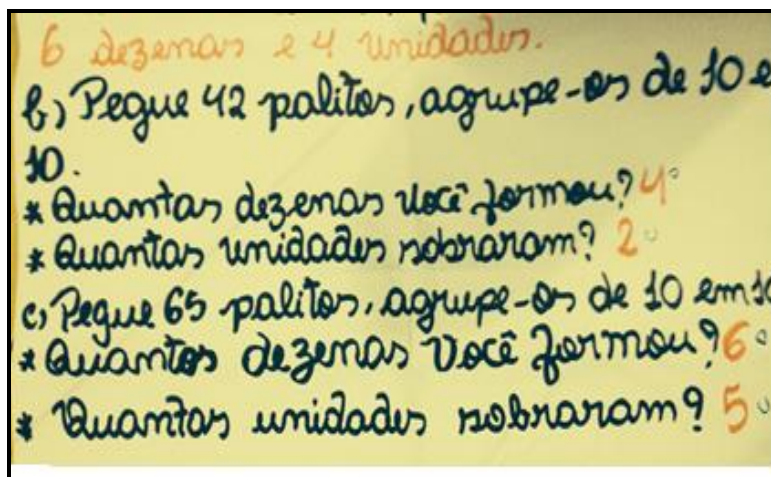 6 dezenas e 4 unidades.
b) Pegue 42 palitos, agrupe-os de 10 e
10.
* Quantas dezenas você formou? 4
* Quantas unidades sobraram? 2
c) Pegue 65 palitos, agrupe-os de 10 em 10
* Quantos dezenas Você formou? 6
* Quantas unidades sobraram? 5